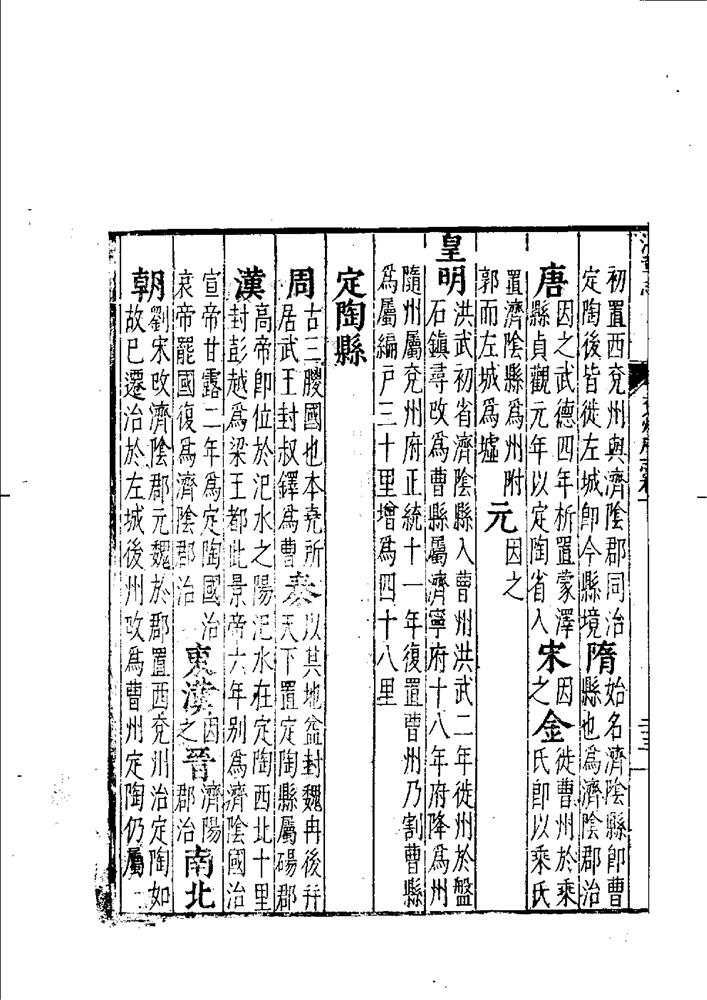 初置西兗州與濟陰郡同治
定陶後皆徙左城即今縣境
隋
始名濟陰縣即曹
縣也爲濟陰郡治
唐
因之武德四年析置蒙澤
縣貞觀元年以定陶省入
宋
因
之
金
徙曹州於乘
氏即以乘氏
置濟陰縣爲州附
郭而左城爲墟
元
因之
皇明
洪武初省濟陰縣入曹州洪武二年徙州於盤
石鎮尋改爲曹縣屬濟寧府十八年府降爲州
隨州屬兗州府正統十一年復置曹州乃割曹縣
爲屬編戶三十里增爲四十八里
定陶縣
周
古三朡國也本堯所
居武王封叔鐸爲曹
秦
以其地益封魏冉後并
天下置定陶縣屬碭郡
漢
高帝即位於汜水之陽汜水在定陶西北十里
封彭越爲梁王都此景帝六年别爲濟陰國治
宣帝甘露二年爲定陶國治
哀帝罷國復爲濟陰郡治
東漢
因
之
晉
濟陽
郡治
南北
朝
劉宋改濟陰郡元魏於郡置西兗州治定陶如
故已遷治於左城後州改爲曹州定陶仍屬